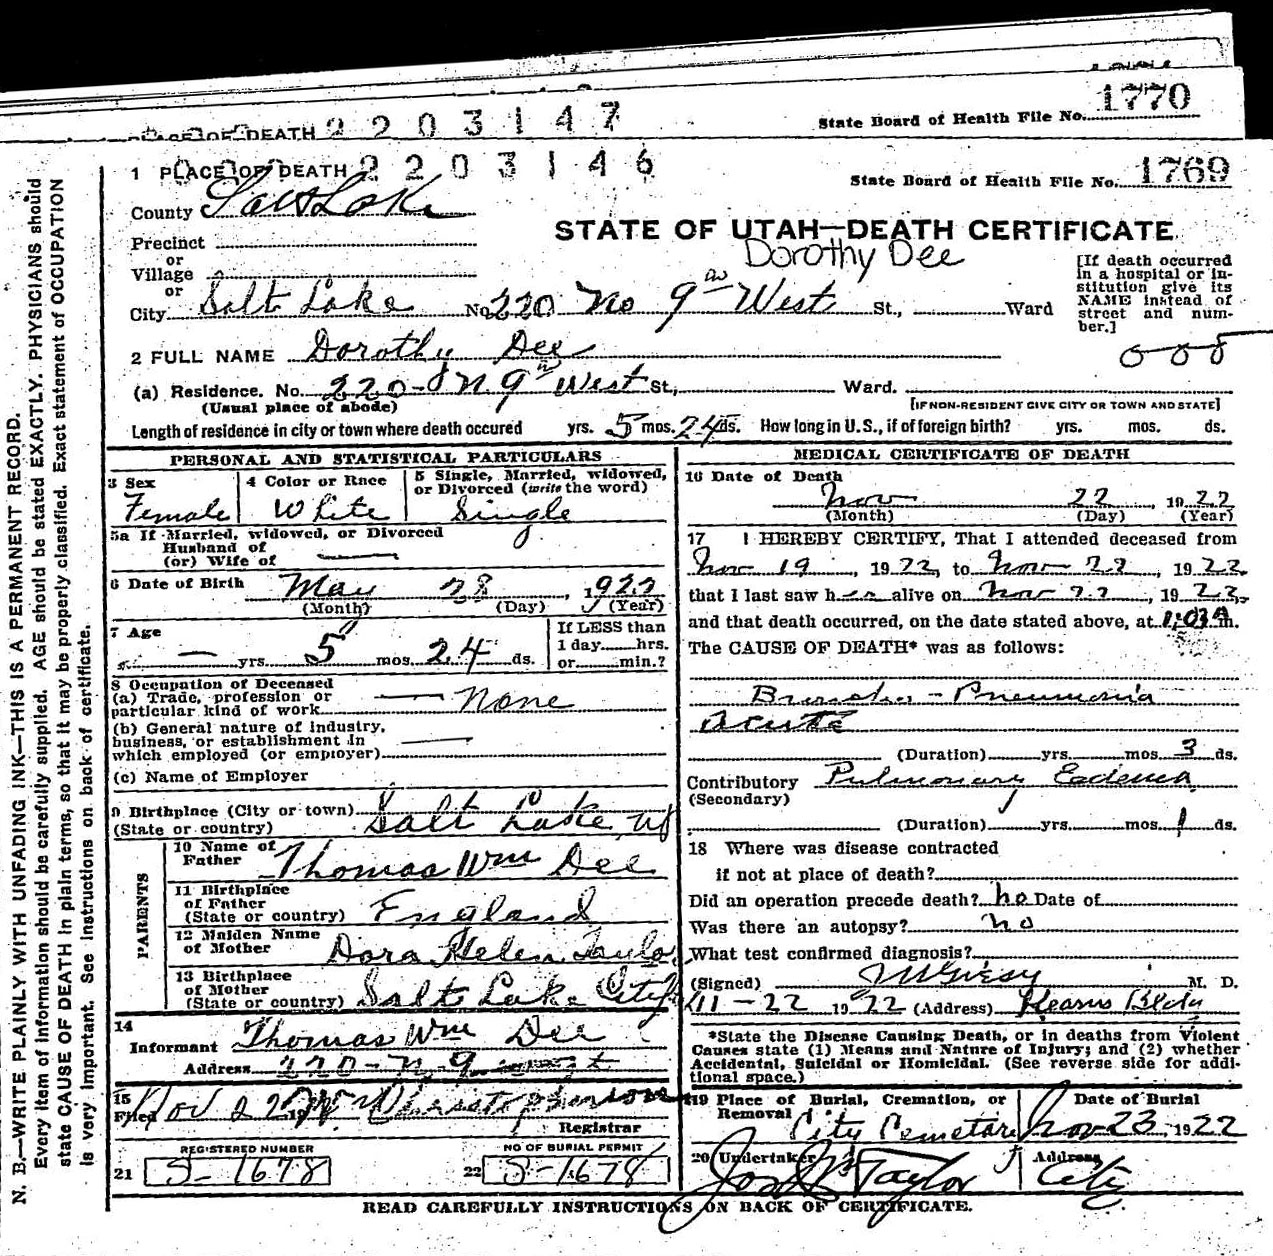 PLACE OF DEATH 2203147
State Board of Health File No. 1770
1 PLACE OF DEATH 2203146
State Board of Health File No. 1769
County Salt Lake
STATE OF UTAH—DEATH CERTIFICATE
Precinct
or
Village
or
Dorothy Dee
[If death occurred in a hospital or institution give its NAME instead of street and number.]
City Salt Lake No. 220 No 9th West St., Ward
2 FULL NAME Dorothy Dee
(a) Residence. No. 220 - N 9 West St., Ward.
(Usual place of abode)
[IF NON-RESIDENT GIVE CITY OR TOWN AND STATE]
Length of residence in city or town where death occured yrs. 5 mos. 24 ds. How long in U.S., if of foreign birth? yrs. mos. ds.
PERSONAL AND STATISTICAL PARTICULARS
3 Sex
Female
4 Color or Race
White
5 Single, Married, widowed, or Divorced (write the word)
Single
5a If Married, widowed, or Divorced
Husband of
(or) Wife of —
6 Date of Birth May 28, 1922
(Month) (Day) (Year)
7 Age
— yrs. 5 mos. 24 ds.
If LESS than
1 day hrs.
or min.?
8 Occupation of Deceased
(a) Trade, profession or
particular kind of work — none
(b) General nature of industry,
business, or establishment in
which employed (or employer) —
(c) Name of Employer
9 Birthplace (City or town) Salt Lake, Ut
(State or country)
PARENTS
10 Name of
Father Thomas Wm Dee
11 Birthplace
of Father
(State or country) England
12 Maiden Name
of Mother Dora Helen
13 Birthplace
of Mother
(State or country) Salt Lake City
14
Informant Thomas Wm Dee
Address 220 - N 9 West
15
Filed Nov 22 Christopherson
Registrar
REGISTERED NUMBER
21 S-1678
NO OF BURIAL PERMIT
22 S-1678
MEDICAL CERTIFICATE OF DEATH
16 Date of Death
Nov 22 1922
(Month) (Day) (Year)
17 I HEREBY CERTIFY, That I attended deceased from
Nov 19, 1922, to Nov 22, 1922
that I last saw her alive on Nov 22, 1922,
and that death occurred, on the date stated above, at m.
The CAUSE OF DEATH* was as follows:
Broncho - Pneumonia
Acute
(Duration) yrs. mos. 3 ds.
Contributory Pulmonary Eadema
(Secondary)
(Duration) yrs. mos. 1 ds.
18 Where was disease contracted
if not at place of death?
Did an operation precede death? no Date of
Was there an autopsy? no
What test confirmed diagnosis?
(Signed) M. D.
11-22 1922 (Address) Kearns Bldg
*State the Disease Causing Death, or in deaths from Violent
Causes state (1) Means and Nature of Injury; and (2) whether
Accidental, Suicidal or Homicidal. (See reverse side for additional space.)
19 Place of Burial, Cremation, or
Removal City Cemetary
Date of Burial
Nov 23, 1922
20 Undertaker Taylor
Address
City
READ CAREFULLY INSTRUCTIONS ON BACK OF CERTIFICATE.
N. B.—WRITE PLAINLY WITH UNFADING INK—THIS IS A PERMANENT RECORD.
Every item of information should be carefully supplied. AGE should be stated EXACTLY. PHYSICIANS should
state CAUSE OF DEATH in plain terms, so that it may be properly classified. Exact statement of OCCUPATION
is very important. See instructions on back of certificate.